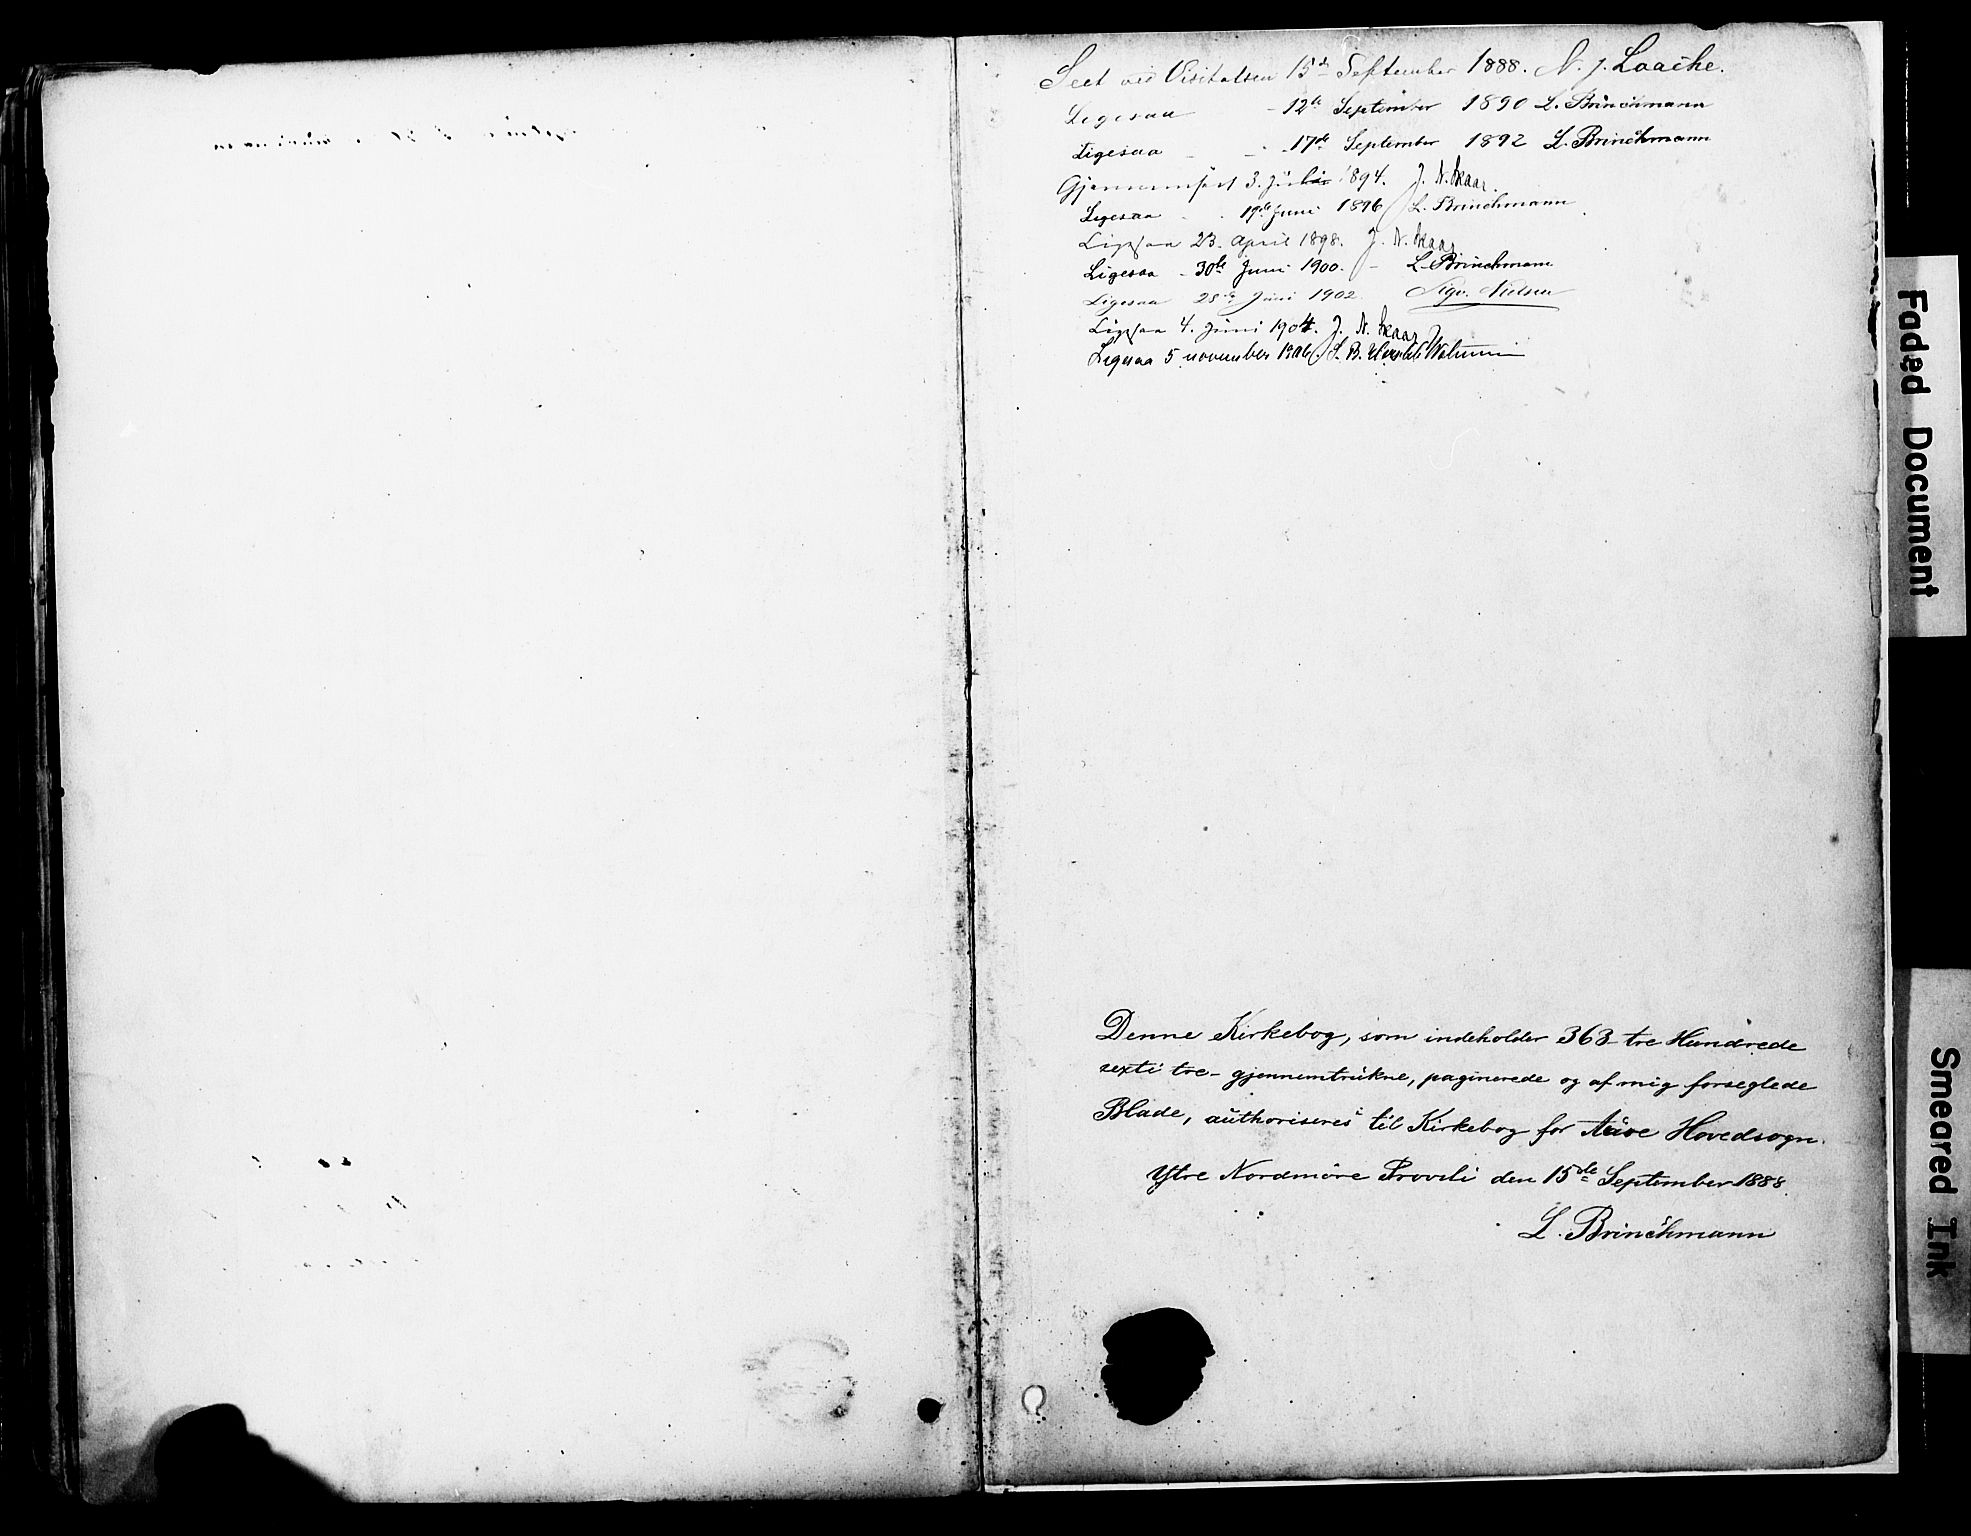 Seet ved Visitatsen 15de September 1888. N. J. Laache.
Ligesaa - 12te September 1890 L. Brinchmann
Ligesaa - - 17de September 1892 L. Brinchmann
Gjennemført 3. Juli 1894. J. N. Skaar.
Ligesaa - 19de Juni 1896 L. Brinchmann
Ligesaa 23. April 1898. J. N. Skaar
Ligesaa - 30te Juni 1900. - L. Brinchmann
Ligesaa 28de Juni 1902 Sigv. Nielsen
Ligesaa 4. Juni 1904. J. N. Skaar
Ligesaa 5 november 1906.
Denne Kirkebog, som indeholder 363 - tre Hundrede
sexti tre - gjennemtrukne, paginerede og af mig forseglede
Blade, authoriseres til Kirkebog for Aure Hovedsogn.
Ytre Nordmøre Provsti den 15de September 1888.
L. Brinchmann
Faded Document
Smeared Ink